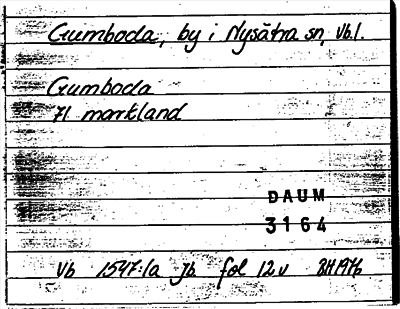 Gumboda, by i Nysätra sn, Vb.l.
Gumboda
71 markland
DAUM
3164
Vb 1547:1a Jb fol 12v BH1976